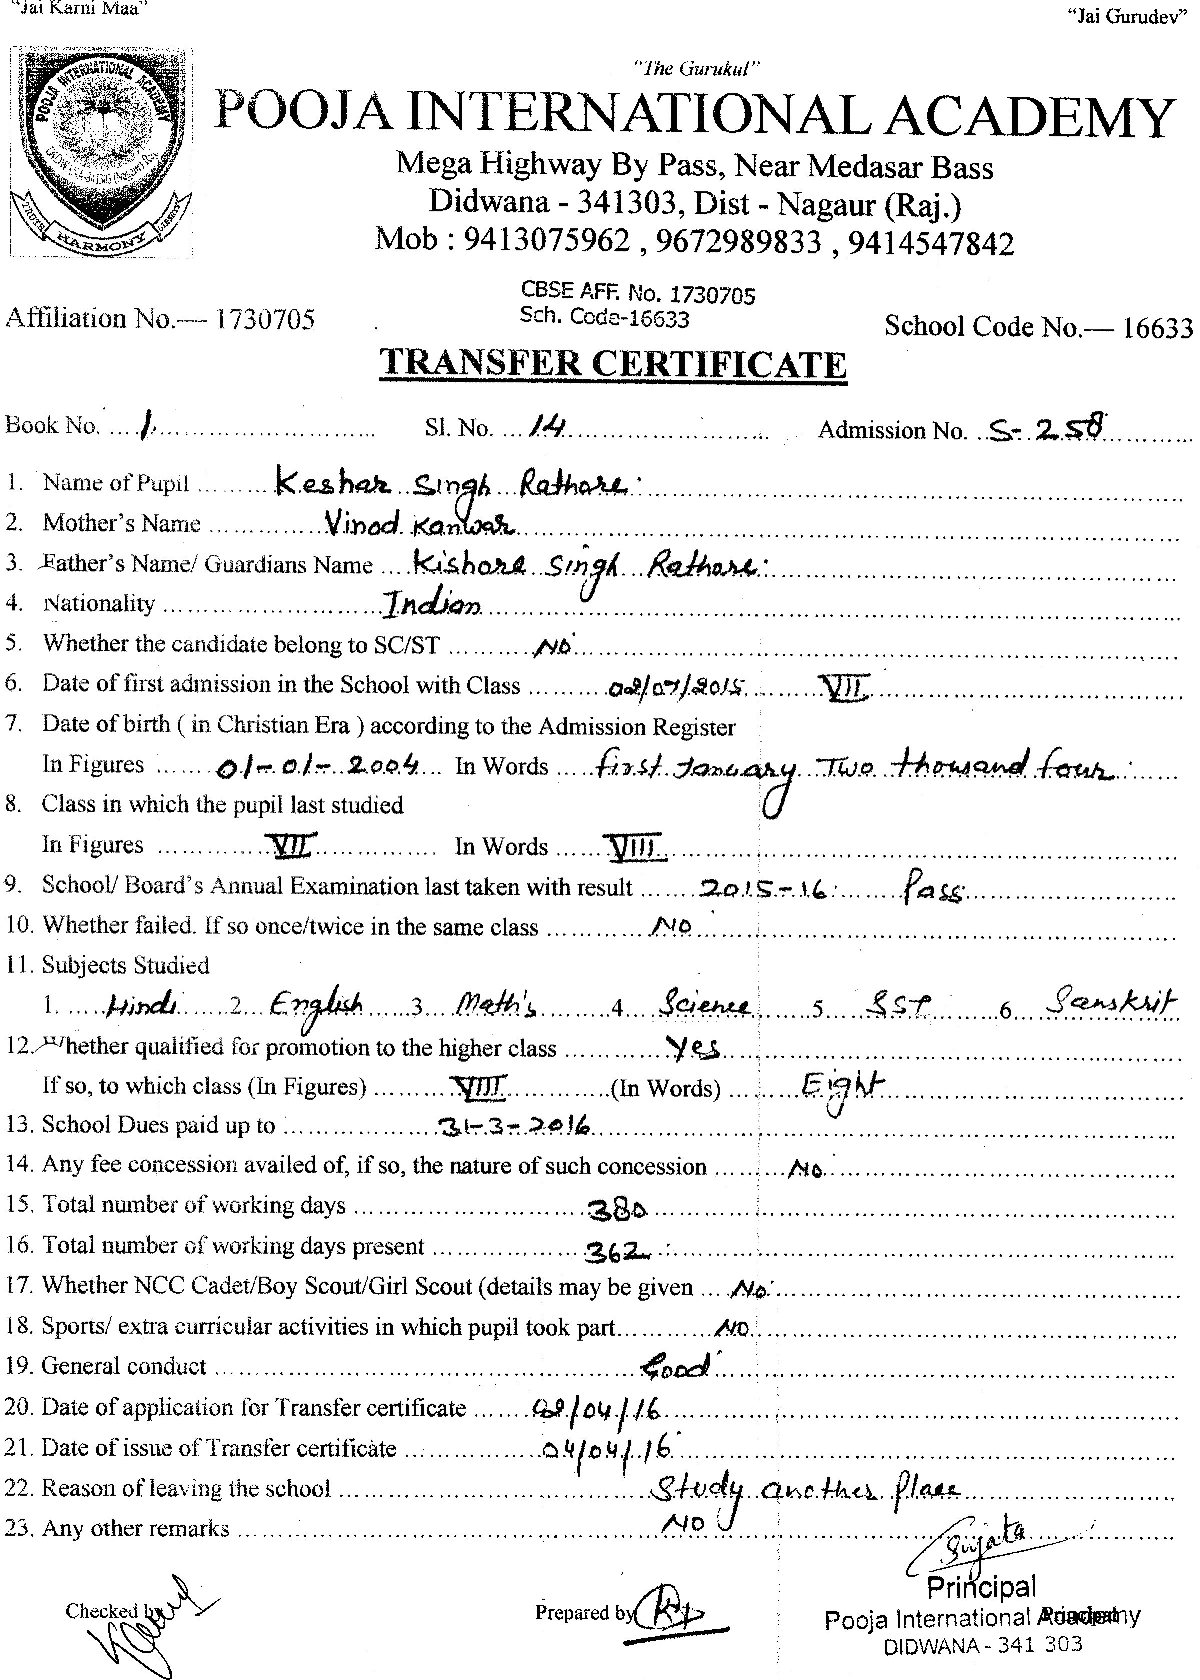 "Jai Karni Maa"
"Jai Gurudev"
"The Gurukul"
POOJA INTERNATIONAL ACADEMY
POOJA INTERNATIONAL ACADEMY
HARMONY
Mega Highway By Pass, Near Medasar Bass
Didwana - 341303, Dist - Nagaur (Raj.)
Mob : 9413075962 , 9672989833 , 9414547842
CBSE AFF. No. 1730705
Sch. Code-16633
Affiliation No.— 1730705
School Code No.— 16633
TRANSFER CERTIFICATE
Book No. 1 Sl. No. 14 Admission No. S-258
1. Name of Pupil Keshar Singh Rathore
2. Mother's Name Vinod Kanwar
3. Father's Name/ Guardians Name Kishore Singh Rathore
4. Nationality Indian
5. Whether the candidate belong to SC/ST No
6. Date of first admission in the School with Class 02/07/2015 VII
7. Date of birth ( in Christian Era ) according to the Admission Register
In Figures 01-01-2004 In Words first January Two thousand four
8. Class in which the pupil last studied
In Figures VII In Words VIII
9. School/ Board's Annual Examination last taken with result 2015-16 Pass
10. Whether failed. If so once/twice in the same class No
11. Subjects Studied
1. Hindi 2 English 3 Math's 4 Science 5 SST 6 Sanskrit
12. Whether qualified for promotion to the higher class Yes
If so, to which class (In Figures) VIII (In Words) Eight
13. School Dues paid up to 31-3-2016
14. Any fee concession availed of, if so, the nature of such concession No
15. Total number of working days 380
16. Total number of working days present 362
17. Whether NCC Cadet/Boy Scout/Girl Scout (details may be given No
18. Sports/ extra curricular activities in which pupil took part No
19. General conduct Good
20. Date of application for Transfer certificate 02/04/16
21. Date of issue of Transfer certificate 04/04/16
22. Reason of leaving the school Study another place
23. Any other remarks No
Sujata
Checked by
Prepared by
Principal
Pooja International Academy
Principal
DIDWANA - 341 303